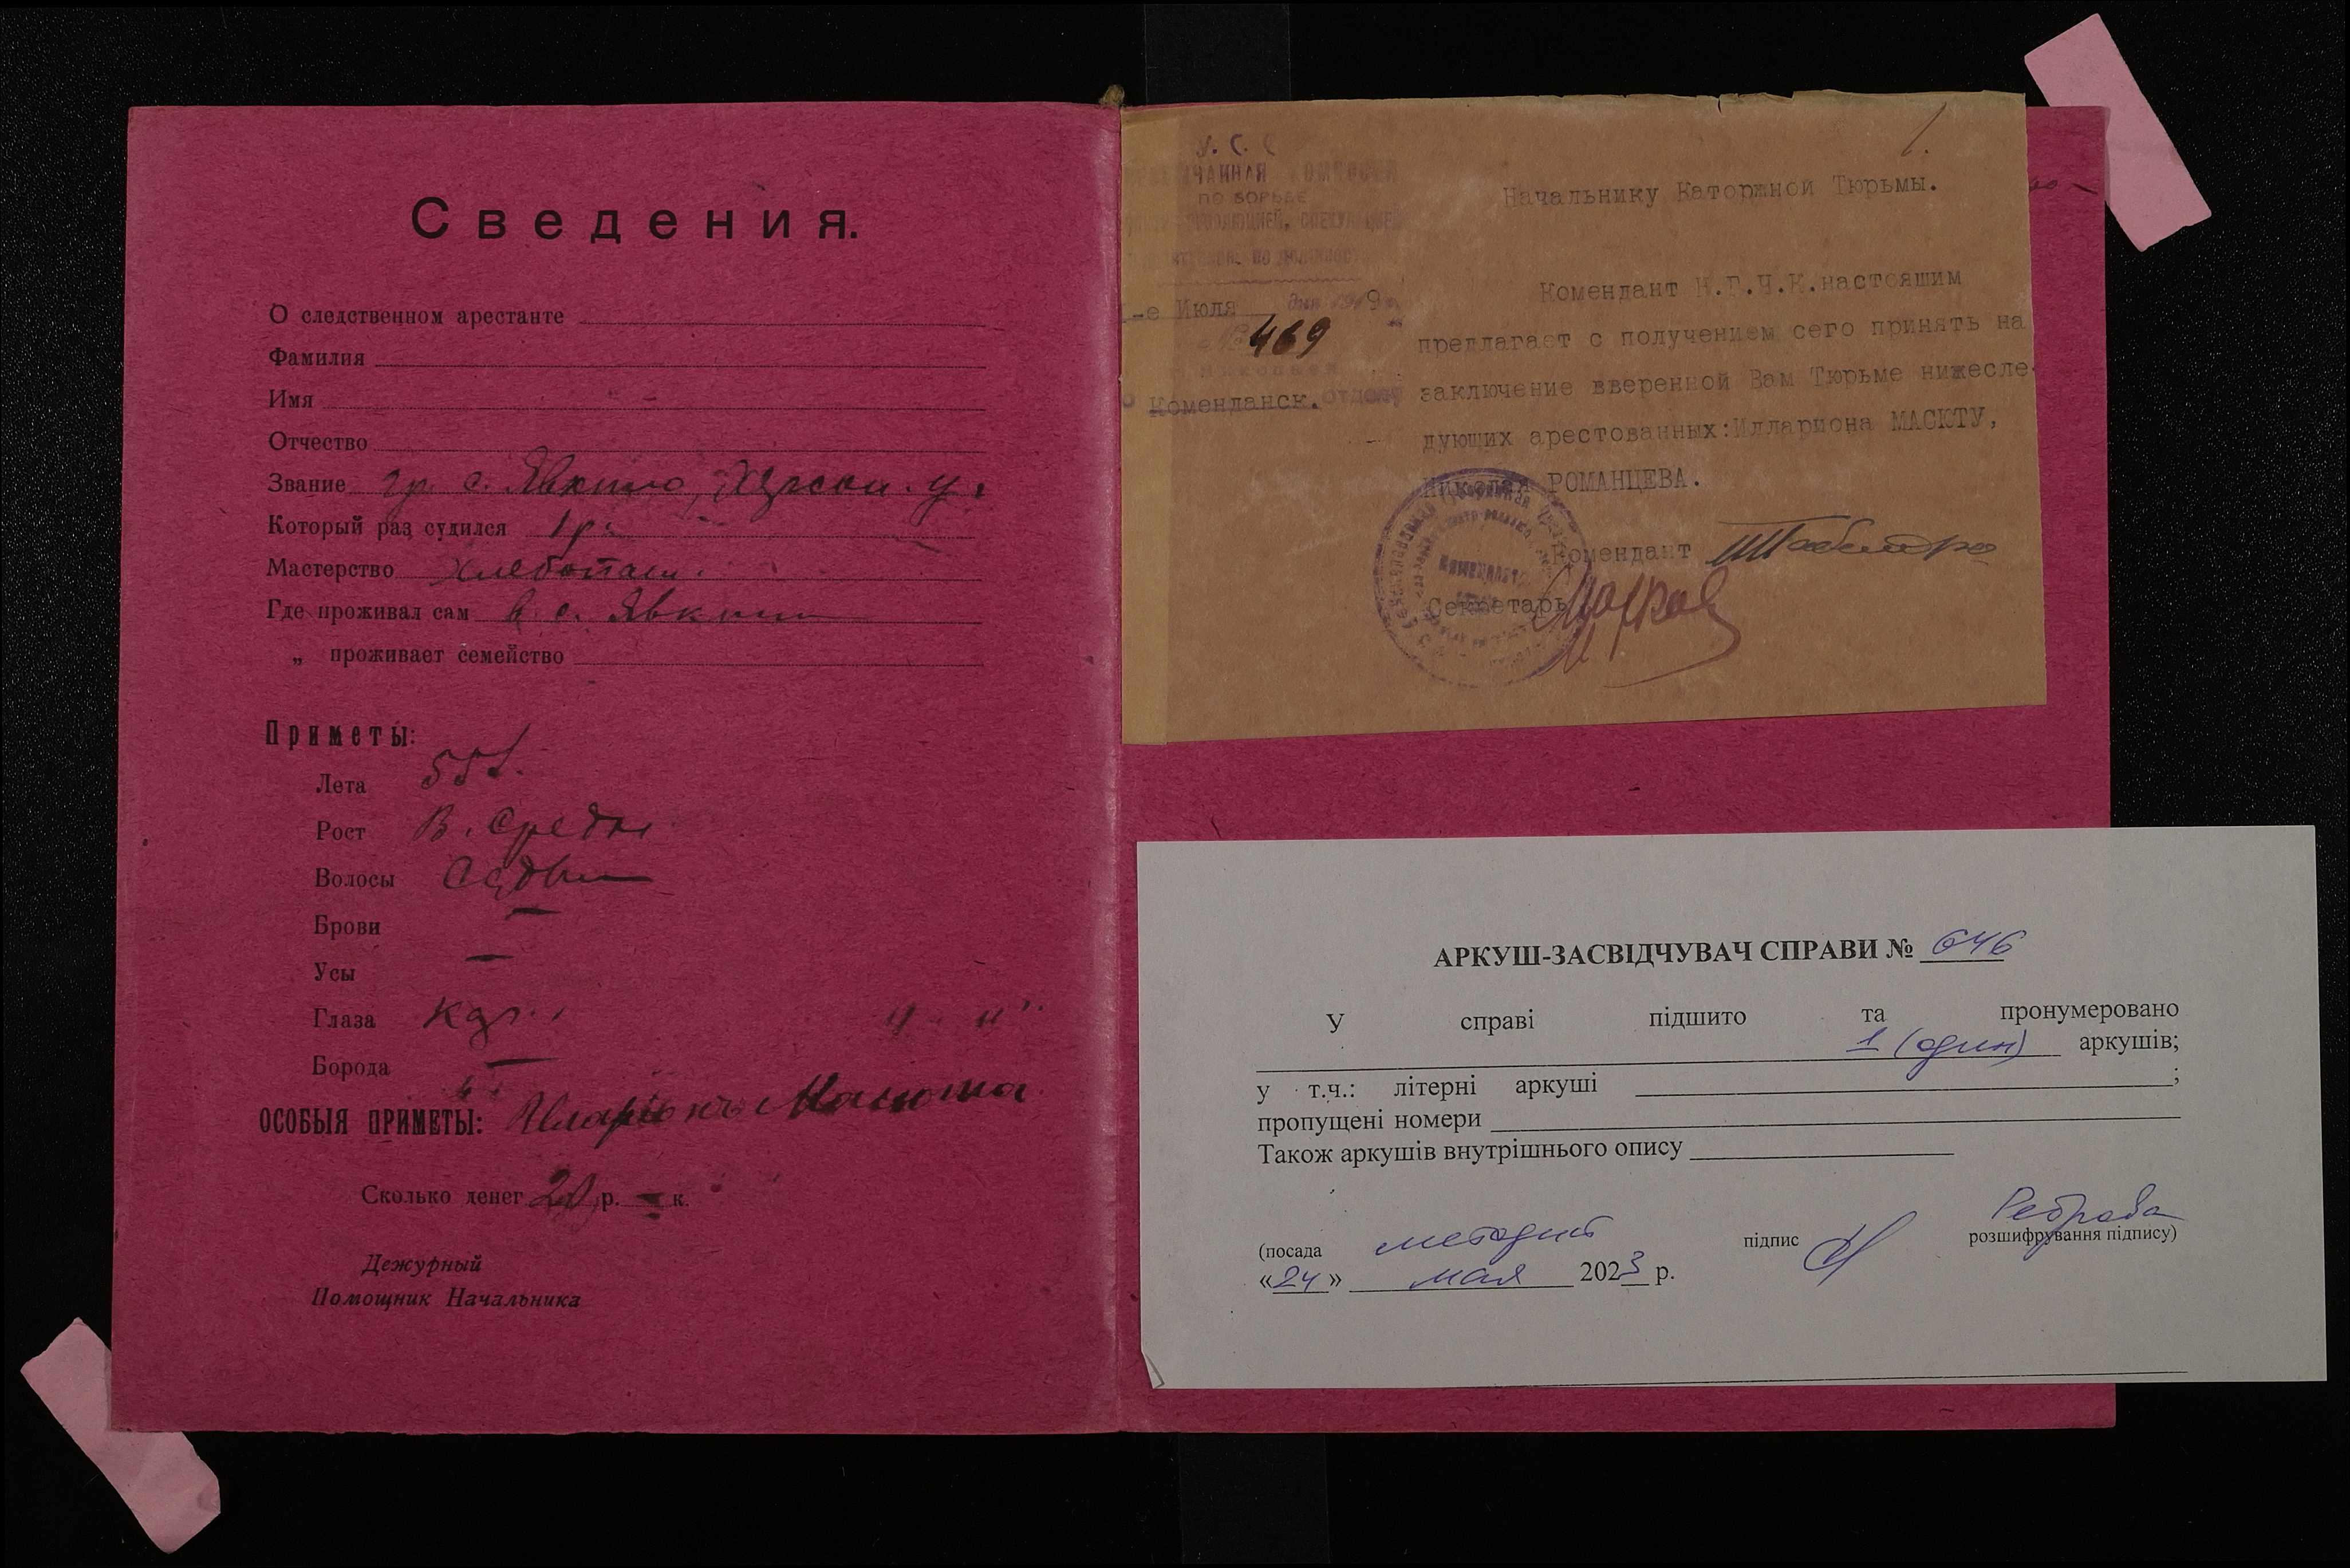 Сведения.
О следственном арестанте
Фамилия
Имя
Отчество
Звание гр. с. Явкино, Херсон. у.
Который раз судился 1 р.
Мастерство Хлебопаш.
Где проживал сам в с. Явкино
„ проживает семейство
Приметы:
Лета 55 л.
Рост В. Средн
Волосы Седые
Брови —
Усы —
Глаза Кар.
Борода —
ОСОБЫЯ ПРИМЕТЫ: Иларионъ Масюта
Сколько денег 20 р. — к.
Дежурный
Помощник Начальника
1.
У. С. С
ПО БОРЬБЕ
СПЕКУЛЯЦИЕЙ
-е Июля 9
469
Коменданск. отделу
Начальнику Каторжной Тюрьмы.
Комендант Н.Г.Ч.К. настояшим
предлагает с получением сего принять на
заключение вверенной Вам Тюрьме нижесле-
дующих арестованных:Иллариона МАСЮТУ,
Николая РОМАНЦЕВА.
Комендант
Секретарь
АРКУШ-ЗАСВІДЧУВАЧ СПРАВИ № 646
У справі підшито та пронумеровано
1 (один) аркушів;
у т.ч.: літерні аркуші ;
пропущені номери
Також аркушів внутрішнього опису
(посада методист підпис Реброва розшифрування підпису)
«24» мая 2023 р.